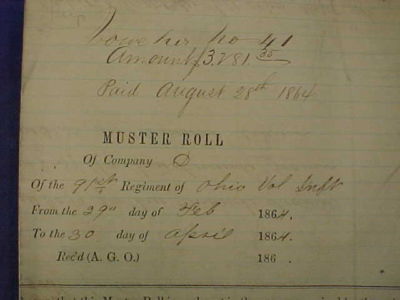 Voucher No 41
Amount $3.281.35
Paid August 28th 1864
MUSTER ROLL
Of Company D
Of the 91st Regiment of Ohio Vol Infty
From the 29" day of Feb 1864.
To the 30 day of April 1864.
Rec'd (A. G. O.) 186 .
that this Muster Roll